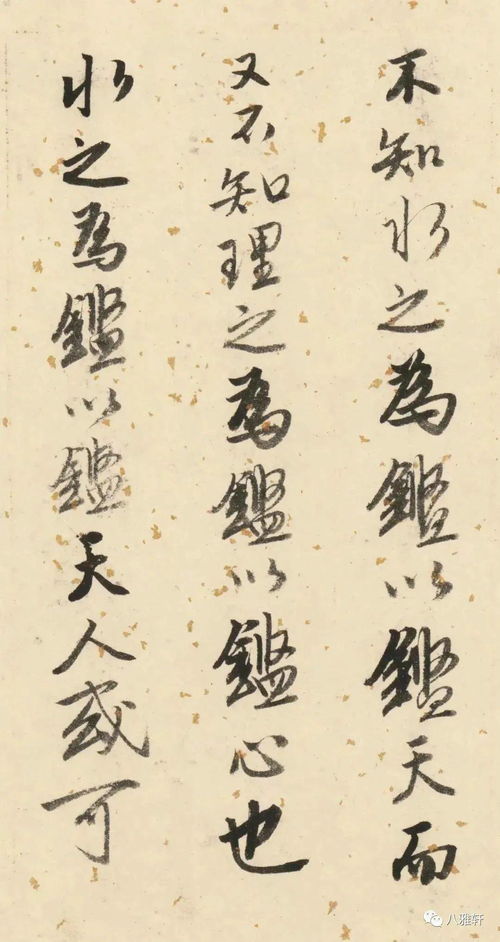 不知水之為鑑以鑑天而
又不知理之為鑑以鑑心也
水之為鑑以鑑天人或可
八雅轩